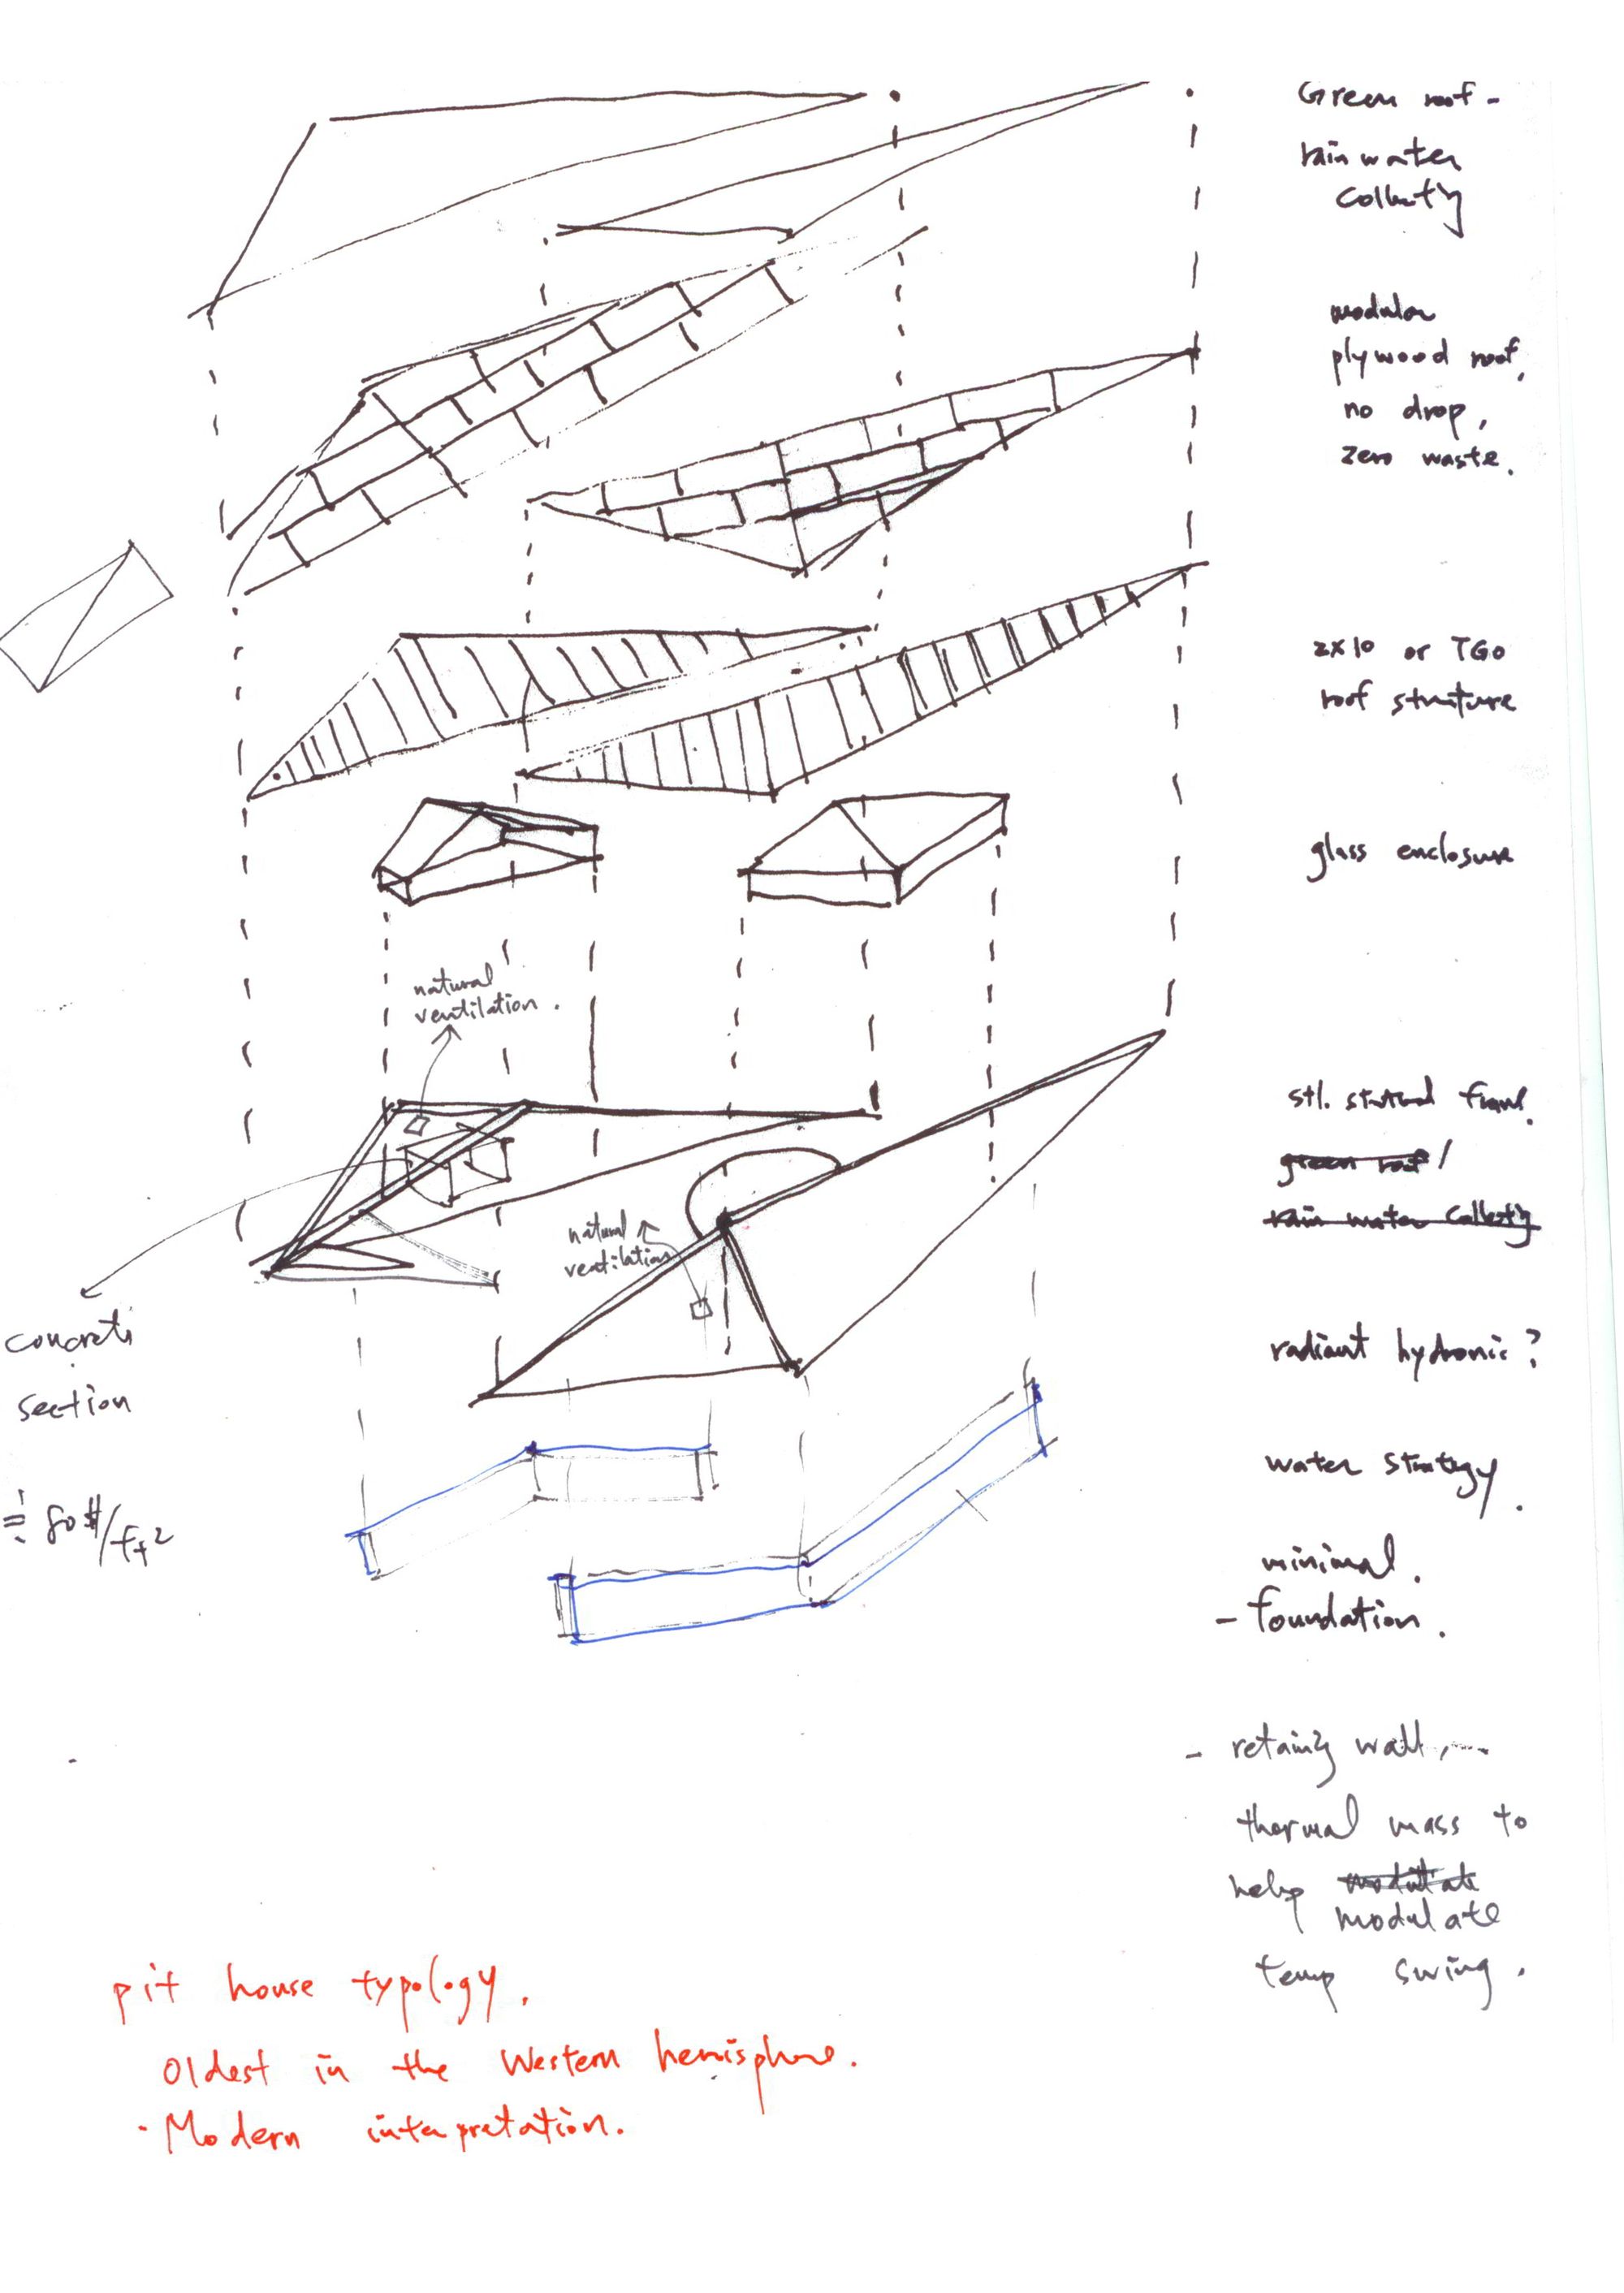 Green roof -
rain water
Collect'g
modular
plywood roof,
no drop,
zero waste.
2x10 or TGO
roof structure
glass enclosure
natural
ventilation.
stl. structural frame.
green roof /
rain water Collect'g
natural
ventilation
concrete
section
radiant hydronic?
water strategy.
≐ 80 $/ft²
minimal.
- foundation.
- retain'g wall,
thermal mass to
help modulate
modulate
temp swing.
pit house typology.
Oldest in the Western hemisphere.
· Modern interpretation.